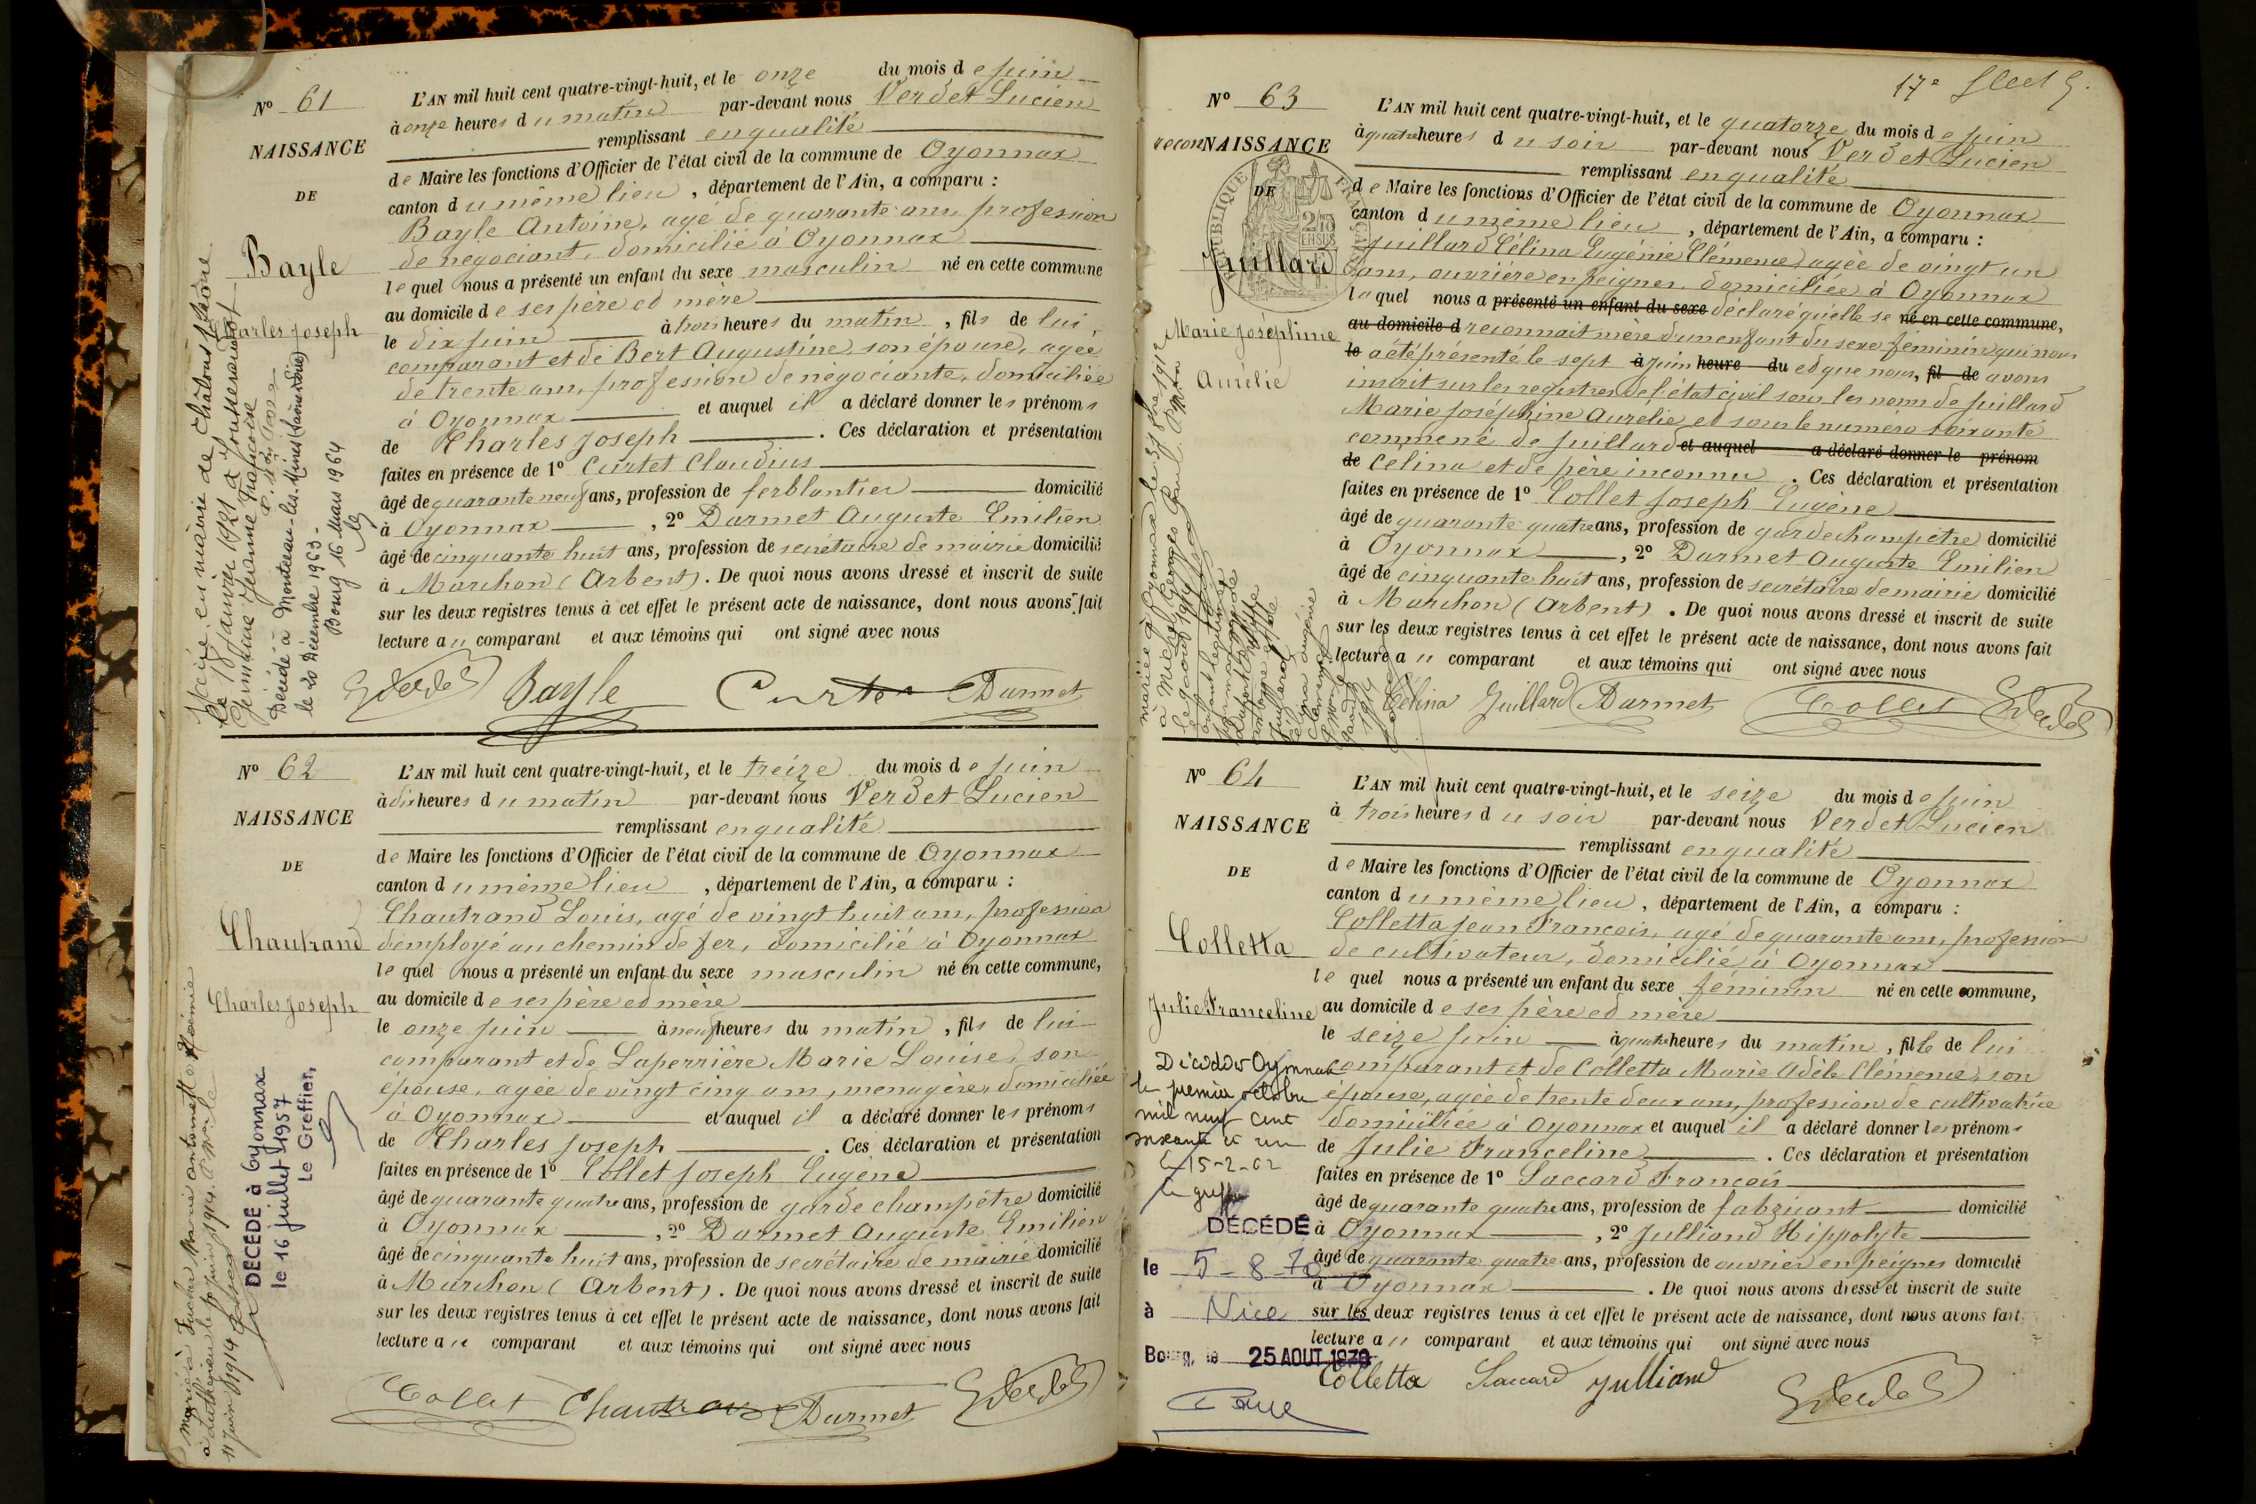 N° 61
NAISSANCE
DE
Bayle
Charles Joseph
L'AN mil huit cent quatre-vingt-huit, et le onze du mois de juin
à onze heures du matin par-devant nous Verdet Lucien
remplissant en qualité
de Maire les fonctions d'Officier de l'état civil de la commune de Oyonnax
canton du même lieu, département de l'Ain, a comparu :
Bayle Antoine, agé de quarante ans, profession
de négociant, domicilié à Oyonnax
lequel nous a présenté un enfant du sexe masculin né en cette commune
au domicile de ses père et mère
le dix juin à trois heures du matin, fils de lui,
comparant et de Bert Augustine, son épouse, agée
de trente ans, profession de négociante, domiciliée
à Oyonnax et auquel il a déclaré donner les prénoms
de Charles Joseph. Ces déclaration et présentation
faites en présence de 1° Curtet Claudius
âgé de quarante neuf ans, profession de ferblantier domicilié
à Oyonnax, 2° Darmet Auguste Emilien
âgé de cinquante huit ans, profession de secrétaire de mairie domicilié
à Marchon (Arbent). De quoi nous avons dressé et inscrit de suite
sur les deux registres tenus à cet effet le présent acte de naissance, dont nous avons fait
lecture au comparant et aux témoins qui ont signé avec nous
Bayle Curtet Darmet
en mairie de Chalons s/ Saône
le 18 janvier 1921 à
Germaine Jeanne Françoise
Décédé à Montceau-les-Mines (Saône et Loire)
le 20 Décembre 1963.
Bourg 16 Mars 1964
N° 62
NAISSANCE
DE
Chautrand
Charles Joseph
L'AN mil huit cent quatre-vingt-huit, et le treize du mois de juin
à dix heures du matin par-devant nous Verdet Lucien
remplissant en qualité
de Maire les fonctions d'Officier de l'état civil de la commune de Oyonnax
canton du même lieu, département de l'Ain, a comparu :
Chautrand Louis, agé de vingt huit ans, profession
d'employé au chemin de fer, domicilié à Oyonnax
lequel nous a présenté un enfant du sexe masculin né en cette commune,
au domicile de ses père et mère
le onze juin à neuf heures du matin, fils de lui
comparant et de Laperrière Marie Louise, son
épouse, agée de vingt cinq ans, menagère, domiciliée
à Oyonnax et auquel il a déclaré donner les prénoms
de Charles Joseph. Ces déclaration et présentation
faites en présence de 1° Collet Joseph Eugène
âgé de quarante quatre ans, profession de garde champêtre domicilié
à Oyonnax, 2° Darmet Auguste Emilien
âgé de cinquante huit ans, profession de secrétaire de mairie domicilié
à Marchon (Arbent). De quoi nous avons dressé et inscrit de suite
sur les deux registres tenus à cet effet le présent acte de naissance, dont nous avons fait
lecture au comparant et aux témoins qui ont signé avec nous
Collet Chautrand Darmet
DÉCÉDÉ à Oyonnax
le 16 juillet 1957
Le Greffier,
17e
N° 63
recon NAISSANCE
DE
Juillard
Marie Joséphine
Aurélie
L'AN mil huit cent quatre-vingt-huit, et le quatorze du mois de juin
à quatre heures du soir par-devant nous Verdet Lucien
remplissant en qualité
de Maire les fonctions d'Officier de l'état civil de la commune de Oyonnax
canton du même lieu, département de l'Ain, a comparu :
Juillard Célina Eugénie Clémence, agée de vingt un
ans, ouvrière en peignes, domiciliée à Oyonnax
laquel nous a présenté un enfant du sexe déclaré qu'elle se né en cette commune,
au domicile d reconnait mère d'un enfant du sexe féminin qui nous
le a été présenté le sept à juin heure du et que nous, fil de avons
inscrit sur les registres de l'état civil sous les noms de Juillard
Marie Joséphine Aurélie et sous le numéro soixante
comme né de Juillard et auquel a déclaré donner le prénom
de Célina et de père inconnu. Ces déclaration et présentation
faites en présence de 1° Collet Joseph Eugène
âgé de quarante quatre ans, profession de garde champêtre domicilié
à Oyonnax, 2° Darmet Auguste Emilien
âgé de cinquante huit ans, profession de secrétaire de mairie domicilié
à Marchon (Arbent). De quoi nous avons dressé et inscrit de suite
sur les deux registres tenus à cet effet le présent acte de naissance, dont nous avons fait
lecture au comparant et aux témoins qui ont signé avec nous
Célina Juillard Darmet Collet
N° 64
NAISSANCE
DE
Colletta
Julie Franceline
L'AN mil huit cent quatre-vingt-huit, et le seize du mois de juin
à trois heures du soir par-devant nous Verdet Lucien
remplissant en qualité
de Maire les fonctions d'Officier de l'état civil de la commune de Oyonnax
canton du même lieu, département de l'Ain, a comparu :
Colletta Jean François, agé de quarante ans, profession
de cultivateur, domicilié à Oyonnax
le quel nous a présenté un enfant du sexe féminin né en cette commune,
au domicile de ses père et mère
le seize juin à quatre heures du matin, fille de lui
comparant et de Colletta Marie Adèle Clémence, son
épouse, agée de trente deux ans, profession de cultivatrice
domiciliée à Oyonnax et auquel il a déclaré donner les prénoms
de Julie Franceline. Ces déclaration et présentation
faites en présence de 1° Laccard François
âgé de quarante quatre ans, profession de fabricant domicilié
à Oyonnax, 2° Julliand Hippolyte
âgé de quarante quatre ans, profession de ouvrier en peignes domicilié
à Oyonnax. De quoi nous avons dressé et inscrit de suite
sur les deux registres tenus à cet effet le présent acte de naissance, dont nous avons fait
lecture au comparant et aux témoins qui ont signé avec nous
Colletta Laccard Julliand
Oyonnax
le premier octobre
mil neuf cent
soixante et un
le 15-2-62
DÉCÉDÉ
le 5-8-70
à Nice
Bourg, le 25 AOUT 1970